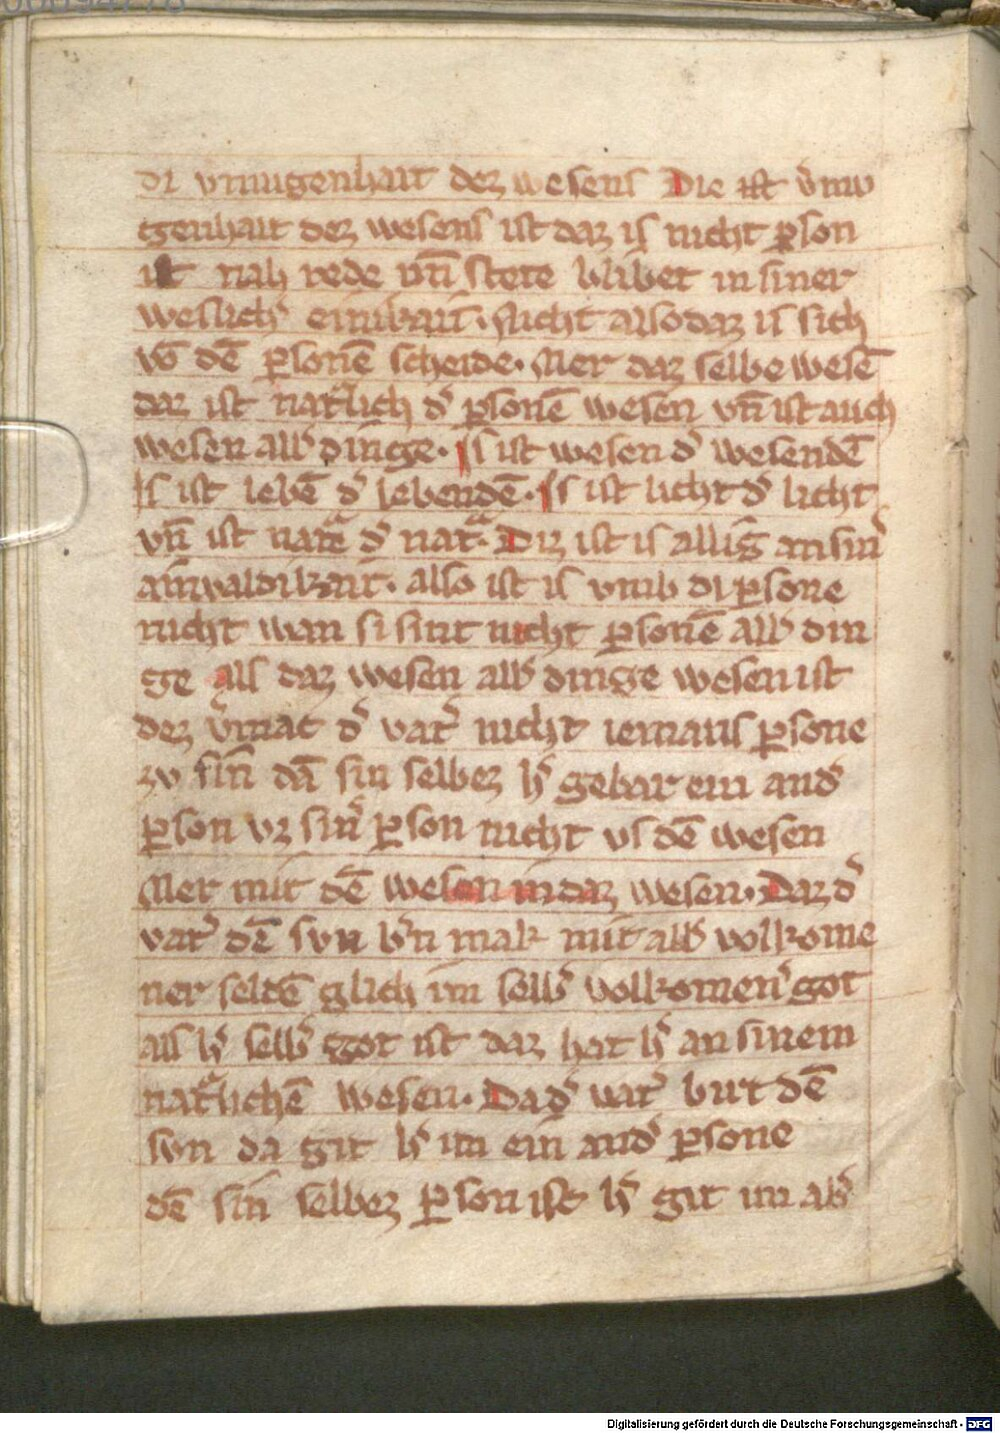 di vmugenhait dez wesens Die ist v̓mu
genhait dez wesens ist daz is nicht ꝑson
ist nah rede vn̄ stete blibet in siner
weslich̓ einvalt. Nicht also daz is sich
vō dē ꝑsonē scheide. Mer daz selbe wesē
daz ist natᷣlich d̓ ꝑsonē wesen vn̄ ist auch
wesen all̓ dinge. Is ist wesen d̓ wesendē
Is ist lebē d̓ lebendē. Is ist licht d̓ licht
vn̄ ist natᷣe d̓ natᷣ. Diz ist is allis an sin̓
ainvaldikait. also ist is vmb di ꝑsone
nicht wan si sint nicht ꝑsonē all̓ din
ge als daz wesen all̓ dinge wesen ist
dez v̓mac d̓ vat̓ nicht iemans ꝑsone
zv sin dā sin selbez h̓ gebar ein and̓
ꝑson vz sin̓ ꝑson nicht vs dē wesen
Mer mit dē wesen in daz wesen. Daz d̓
vat̓ dē svn b̓n mak mit all̓ volkome
ner seldē glich im selb̓ volkomen̓ got
als h̓ selb̓ got ist daz hat h̓ an sinem
natᷣlichē wesen. Da d̓ vat̓ birt dē
svn da git h̓ im ein and̓ ꝑsone
dē sin selbez ꝑson ist h̓ git im ab̓
Digitalisierung gefördert durch die Deutsche Forschungsgemeinschaft - DFG